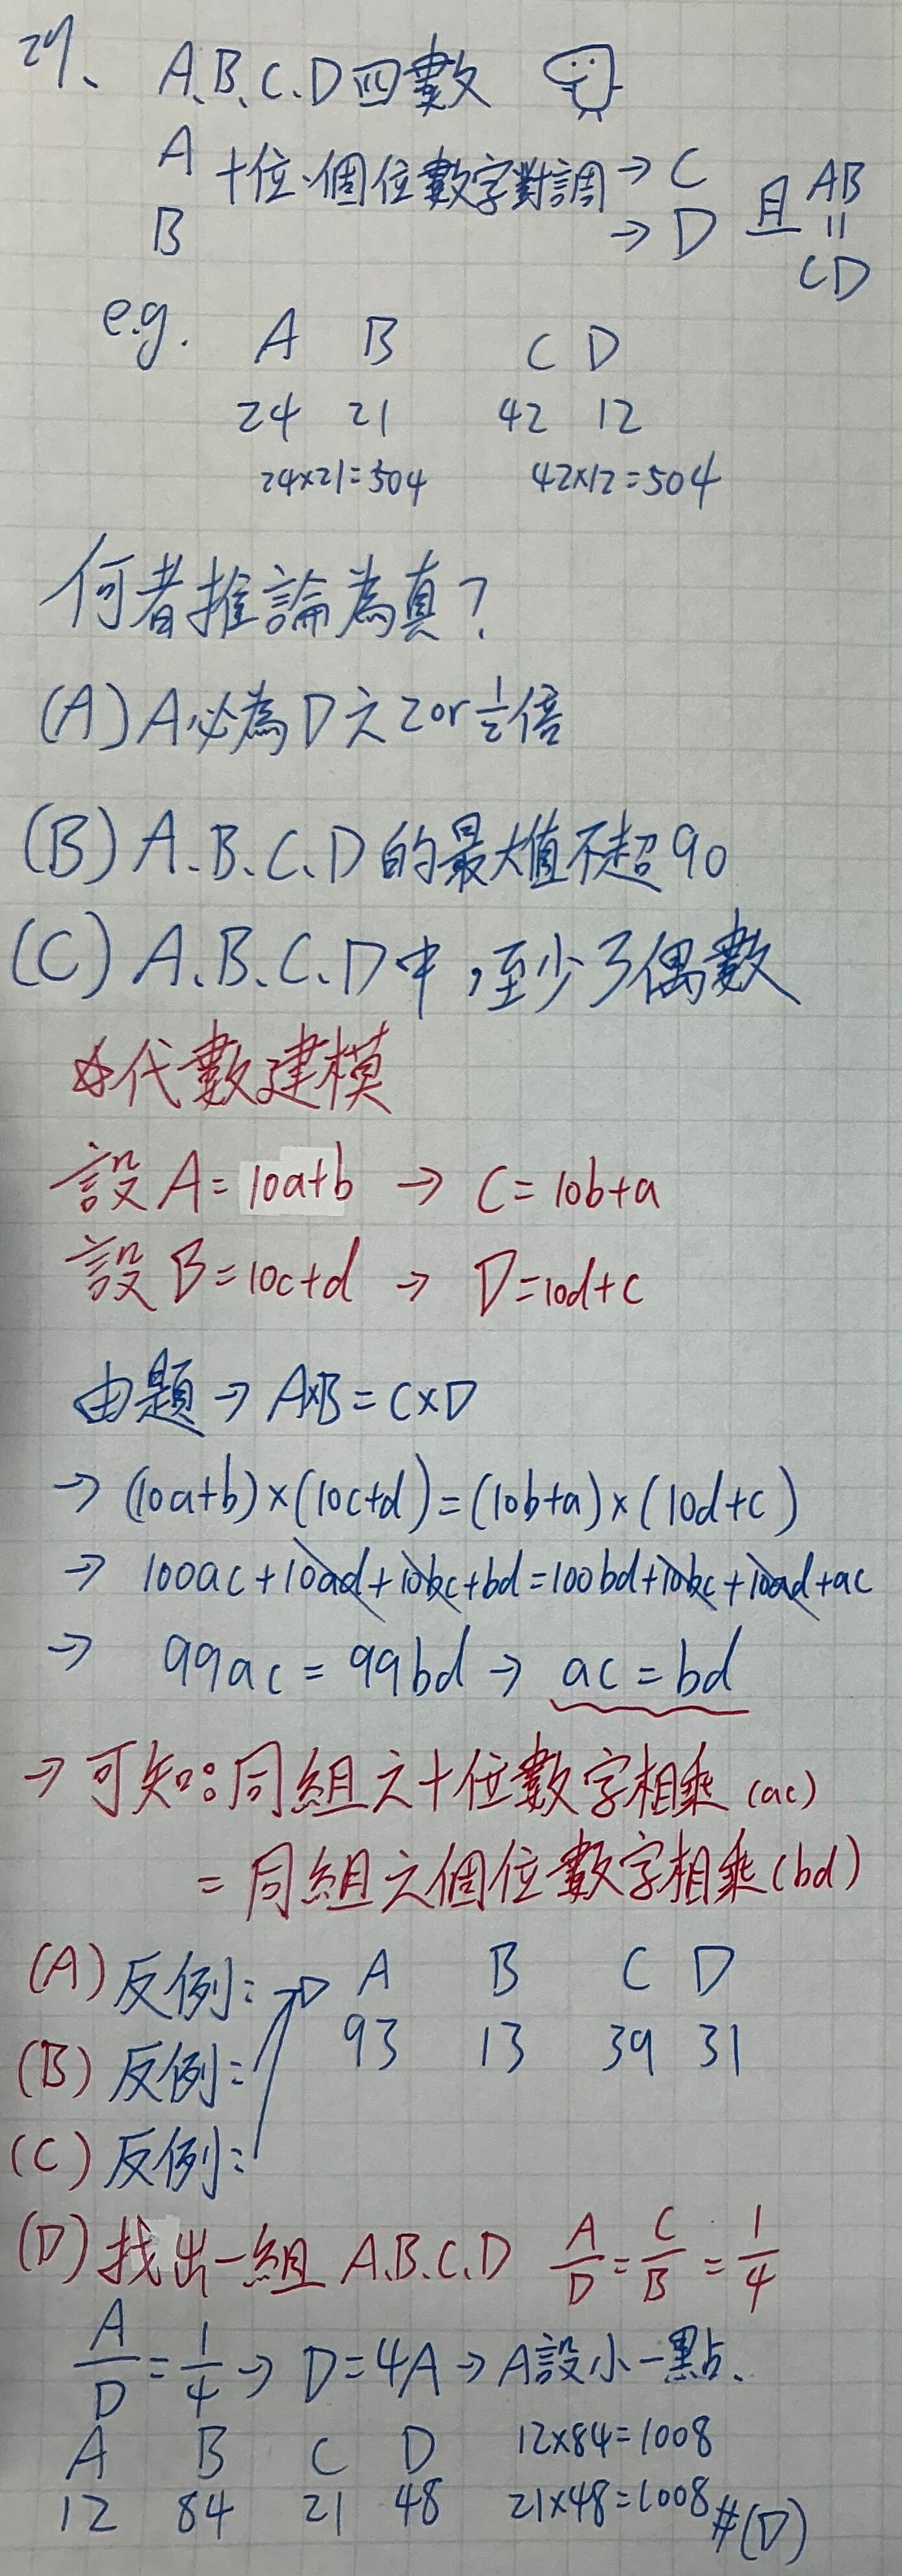 29、 A、B、C、D四數
A 十位、個位數字對調 → C 且 AB
B → D = CD
e.g. A B C D
24 21 42 12
24×21=504 42×12=504
何者推論為真?
(A) A必為D之2or½倍
(B) A.B.C.D的最大值不超90
(C) A.B.C.D中,至少3偶數
☆代數建模
設A=10a+b → C=10b+a
設B=10c+d → D=10d+c
由題→ A×B=C×D
→ (10a+b)×(10c+d)=(10b+a)×(10d+c)
→ 100ac+10ad+10bc+bd=100bd+10bc+10ad+ac
→ 99ac=99bd → ac=bd
→ 可知:同組之十位數字相乘(ac)
=同組之個位數字相乘(bd)
(A) 反例: A B C D
(B) 反例: 93 13 39 31
(C) 反例:
(D) 找出一組 A.B.C.D A/D=C/B=1/4
A/D=1/4→ D=4A→A設小一點、
A B C D 12×84=1008
12 84 21 48 21×48=1008 #(D)